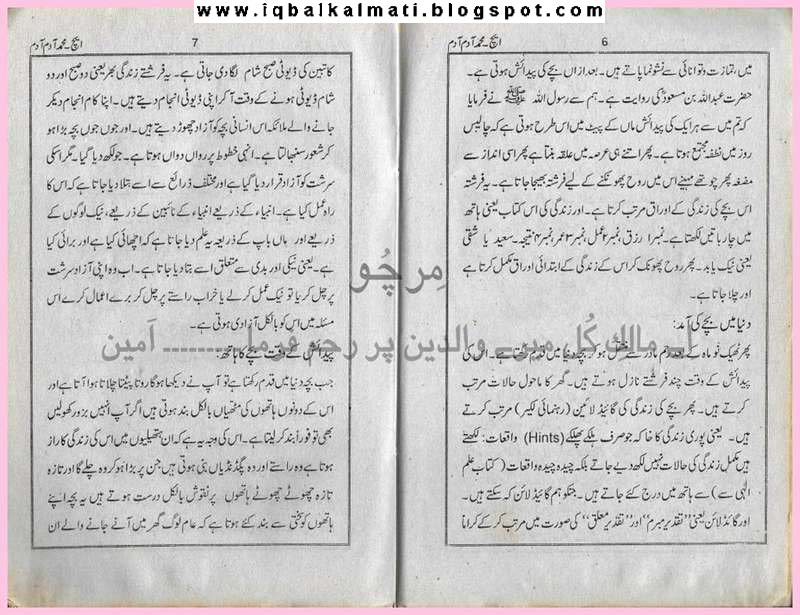 www.iqbalkalmati.blogspot.com
6 ایچ۔محمد آدم آدم
میں، تمازت و توانائی سے نشونما پاتے ہیں۔ بعد ازاں بچے کی پیدائش ہوتی ہے۔
حضرت عبداللہ بن مسعودؓ کی روایت ہے۔ ہم سے رسول اللہ ﷺ نے فرمایا
کہ تم میں سے ہر ایک کی پیدائش ماں کے پیٹ میں اس طرح ہوتی ہے کہ چالیس
روز میں نطفہ مجتمع ہوتا ہے۔ پھر اتنے ہی عرصہ میں علقہ بنتا ہے پھر اسی انداز سے
مضغہ پھر چوتھے مہینے اس میں روح پھونکنے کے لیے فرشتہ بھیجا جاتا ہے۔ یہ فرشتہ
اس بچے کی زندگی کے اوراق مرتب کرتا ہے۔ اور زندگی کی اس کتاب یعنی ہاتھ
میں چار باتیں لکھتا ہے۔ نمبر۱ رزق، نمبر۲ عمل، نمبر۳ عمر، نمبر۴ نتیجہ۔ سعید یا شقی
یعنی نیک یا بد۔ پھر روح پھونک کر اس کے زندگی کے ابتدائی اوراق مکمل کرتا ہے
اور چلا جاتا ہے۔
دنیا میں بچے کی آمد:
پھر ٹھیک نو ماہ کے بعد رحم مادر سے منتقل ہو کر بچہ دنیا میں قدم رکھتا ہے۔ اس کی
پیدائش کے وقت چند فرشتے نازل ہوتے ہیں۔ گھر کا ماحول حالات مرتب
کرتے ہیں۔ پھر بچے کی زندگی کی گائیڈ لائین (رہنمائی لکیر) مرتب کرتے
ہیں۔ یعنی پوری زندگی کا خاکہ جو صرف ہلکے پھلکے (Hints) واقعات: لکھتے
ہیں مکمل زندگی کی حالات نہیں لکھ دیے جاتے بلکہ چیدہ چیدہ واقعات (کتاب علم
الٰہی سے) سے ہاتھ میں درج کئے جاتے ہیں۔ جنکو ہم گائیڈ لائن کہہ سکتے ہیں۔
اور گائیڈ لائن یعنی "تقدیر مبرم" اور "تقدیر معلق" کی صورت میں مرتب کر کے کراماً
7 ایچ۔محمد آدم آدم
کاتبین کی ڈیوٹی صبح شام لگا دی جاتی ہے۔ یہ فرشتے زندگی بھر یعنی دو صبح اور دو
شام ڈیوٹی ہونے کے وقت آ کر اپنی ڈیوٹی انجام دیتے ہیں۔ اپنا کام انجام دیکر
جانے والے ملائکہ اس انسانی بچہ کو آزاد چھوڑ دیتے ہیں۔ اور جوں جوں بچہ بڑا ہو
کر شعور سنبھالتا ہے۔ انہی خطوط پر رواں دواں ہوتا ہے۔ جو لکھ دیا گیا۔ مگر اسکی
سرشت کو آزاد قرار دیا گیا ہے اور مختلف ذرائع سے اسے بتلا دیا جاتا ہے کہ اس کا
راہ عمل کیا ہے۔ انبیاء کے ذریعے انبیاء کے نائبین کے ذریعے، نیک لوگوں کے
ذریعے اور ماں باپ کے ذریعہ یہ علم دیا جاتا ہے کہ اچھائی کیا ہے اور برائی کیا
ہے۔ یعنی نیکی اور بدی سے متعلق اسے بتا دیا جاتا ہے۔ اب وہ اپنی آزاد سرشت
پر چل کر یا تو نیک عمل کرلے یا خراب راستے پر چل کر برے اعمال کرے اس
مسئلہ میں اس کو بالکل آزادی ہوتی ہے۔
پیدائش کے وقت بچے کا ہاتھ:
جب بچہ دنیا میں قدم رکھتا ہے تو آپ نے دیکھا ہو گا روتا پیٹتا چلاتا ہوا آتا ہے اور
اس کے دونوں ہاتھوں کی مٹھیاں بالکل بند ہوتی ہیں اگر آپ انہیں بزور کھولیں
بھی تو فوراً بند کر لیتا ہے۔ اس کی وجہ یہ ہے کہ ان ہتھیلیوں میں اس کی زندگی کا راز
ہوتا ہے وہ راستے اور وہ پگڈنڈیاں بنی ہوتی ہیں جن پر بڑا ہو کر وہ چلے گا اور تازہ
تازہ چھوٹے چھوٹے ہاتھوں پر نقوش بالکل درست ہوتے ہیں یہ بچہ اپنے
ہاتھوں کو سختی سے بند کئے ہوتا ہے کہ عام لوگ گھر میں آنے جانے والے ان
مِرچُو
اے مالِکِ کُل میرے والدین پر رحم فرما ۔۔۔۔۔۔۔ آمین